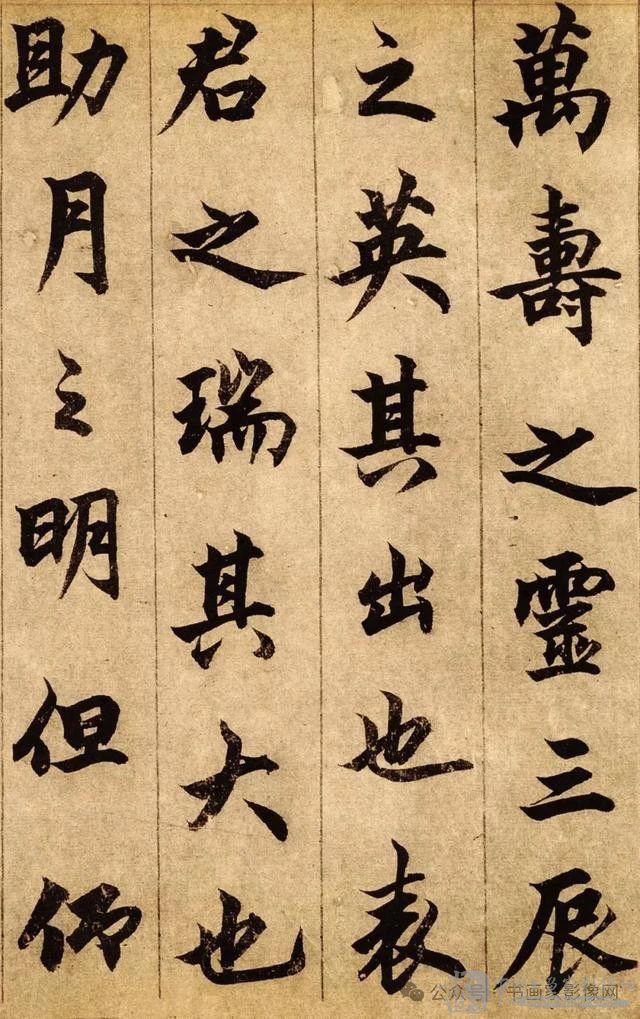 萬壽之靈三辰
之英其出也表
君之瑞其大也
助月之明但仰
公众号·书画家影像网